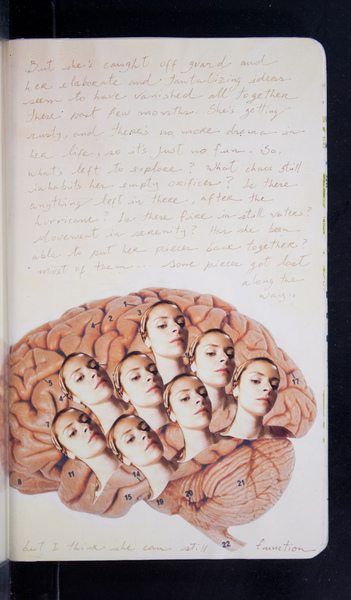 But she's caught off guard and
her elaborate and tantalizing ideas
seem to have vanished all together
these past few months. She's getting
antsy, and there's no more drama in
her life, so it's just no fun. So,
what's left to explore? What chaos still
inhabits her empty orifices? Is there
anything left in there, after the
hurricane? Is there fire in still waters?
Movement in serenity? Has she been
able to put her pieces back together?
most of them... some pieces got lost
along the
way...
4 2 3
5
6
7
17
8 11 14
15 19 20 21
22
but I think she can still function